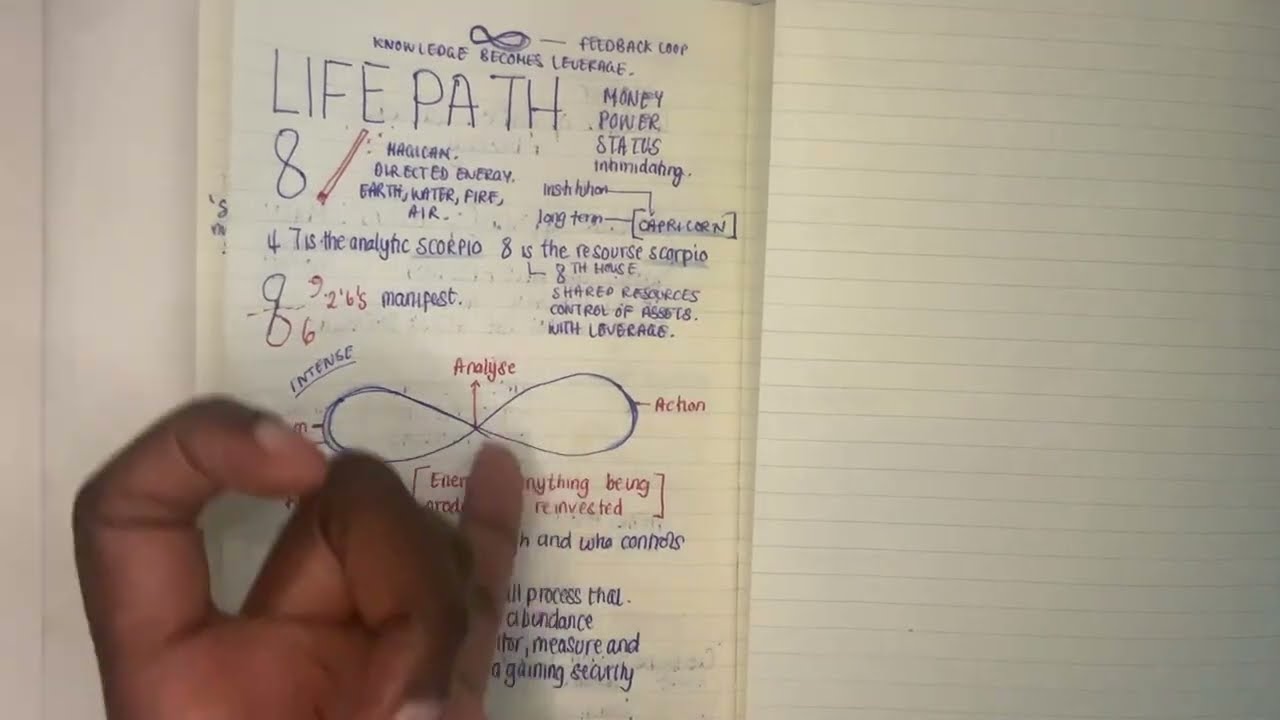 — FEEDBACK LOOP
KNOWLEDGE BECOMES LEVERAGE.
LIFE PATH
8
MONEY
POWER
STATUS
inhmidating.
: MAGICAN.
DIRECTED ENERGY.
EARTH, WATER, FIRE,
AIR.
Institution
long term — [CAPRICORN]
4 7 is the analytic SCORPIO 8 is the resourse scorpio
8TH HOUSE
SHARED RESOURCES
CONTROL OF ASSETS.
WITH LEVERAGE.
8 9 2'6's manifest.
6
INTENSE
Analyse
Action
[ being
reinvested ]
and who controls
process that.
abundance
measure and
gaining security